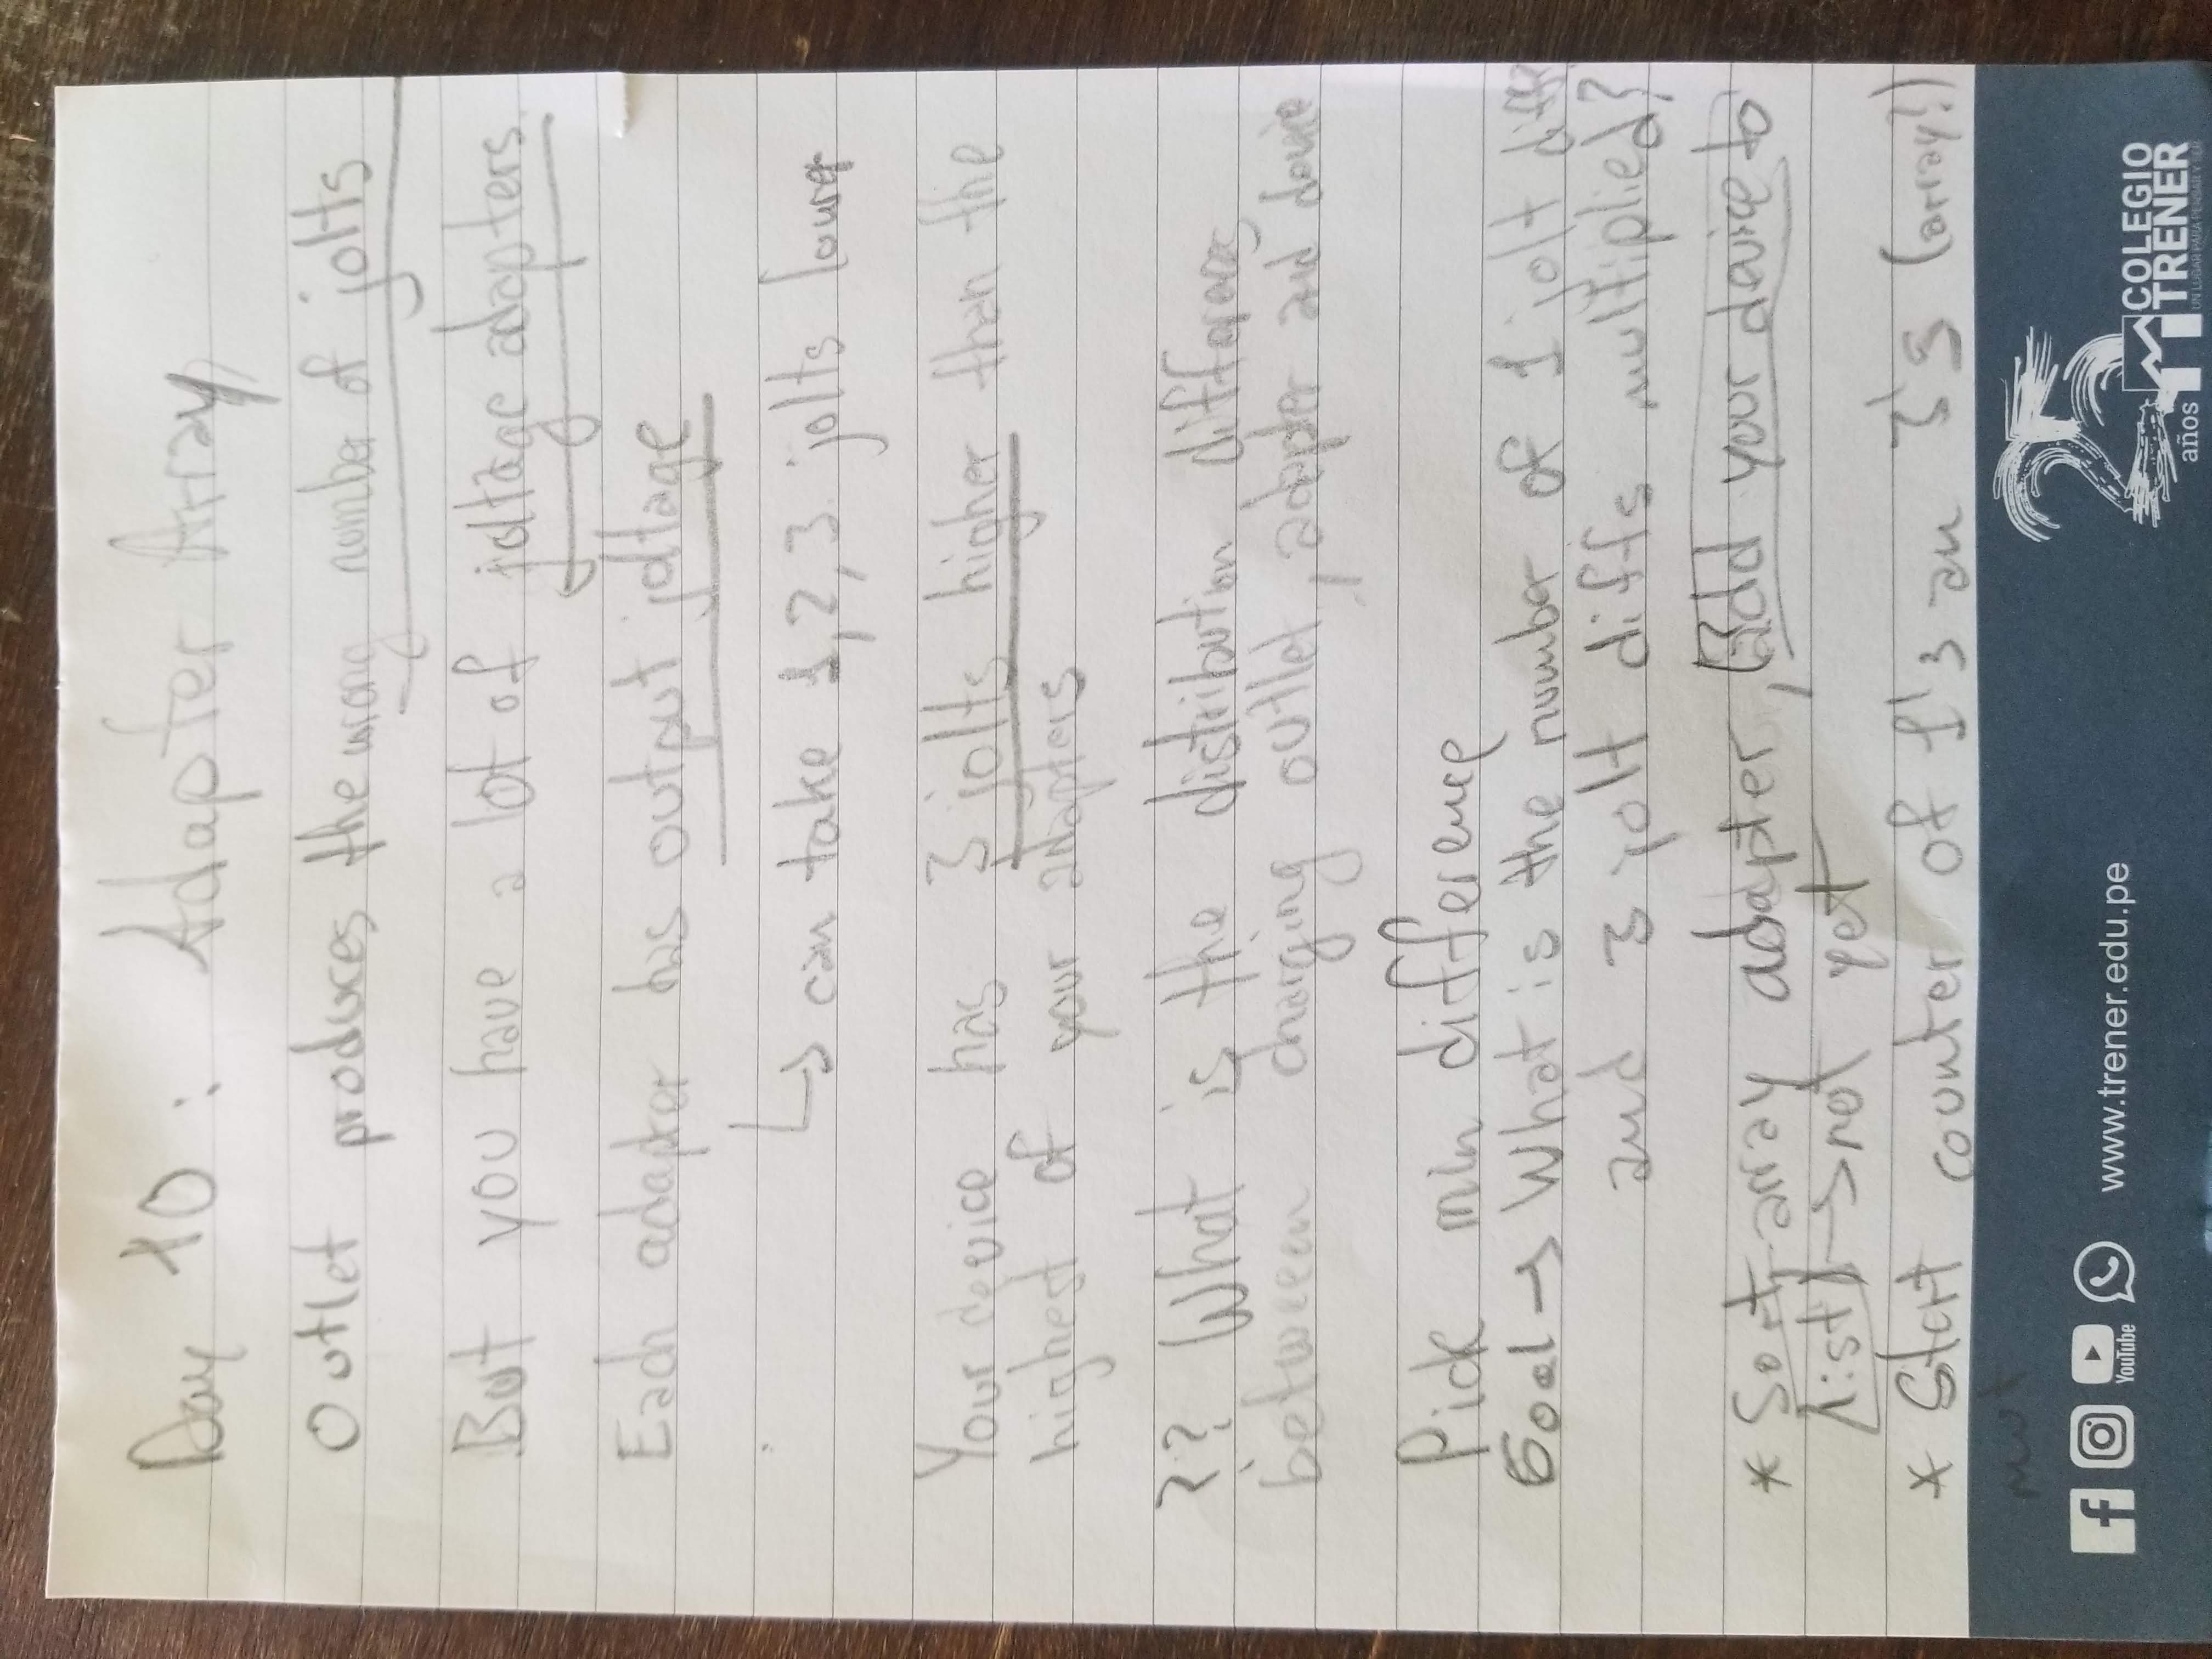 Day 10 : Adapter Array
Outlet produces the wrong number of jolts
But you have a lot of joltage adapters.
Each adapter has output joltage
↳ can take 1, 2, 3 jolts lower
Your device has 3 jolts higher than the
highest of your adapters
?? What is the distribution differences
betweeen charging outlet, adapter and device
Pick min difference
Goal → What is the number of 1 jolt diffs
and 3 jolt diffs multiplied?
* Sort array adapter, add your device to
list → not yet
* Start counter of 1's an 3's (array?)
mut
YouTube
www.trener.edu.pe
25
años
COLEGIO
TRENER
UN LUGAR PARA PENSAR Y SER